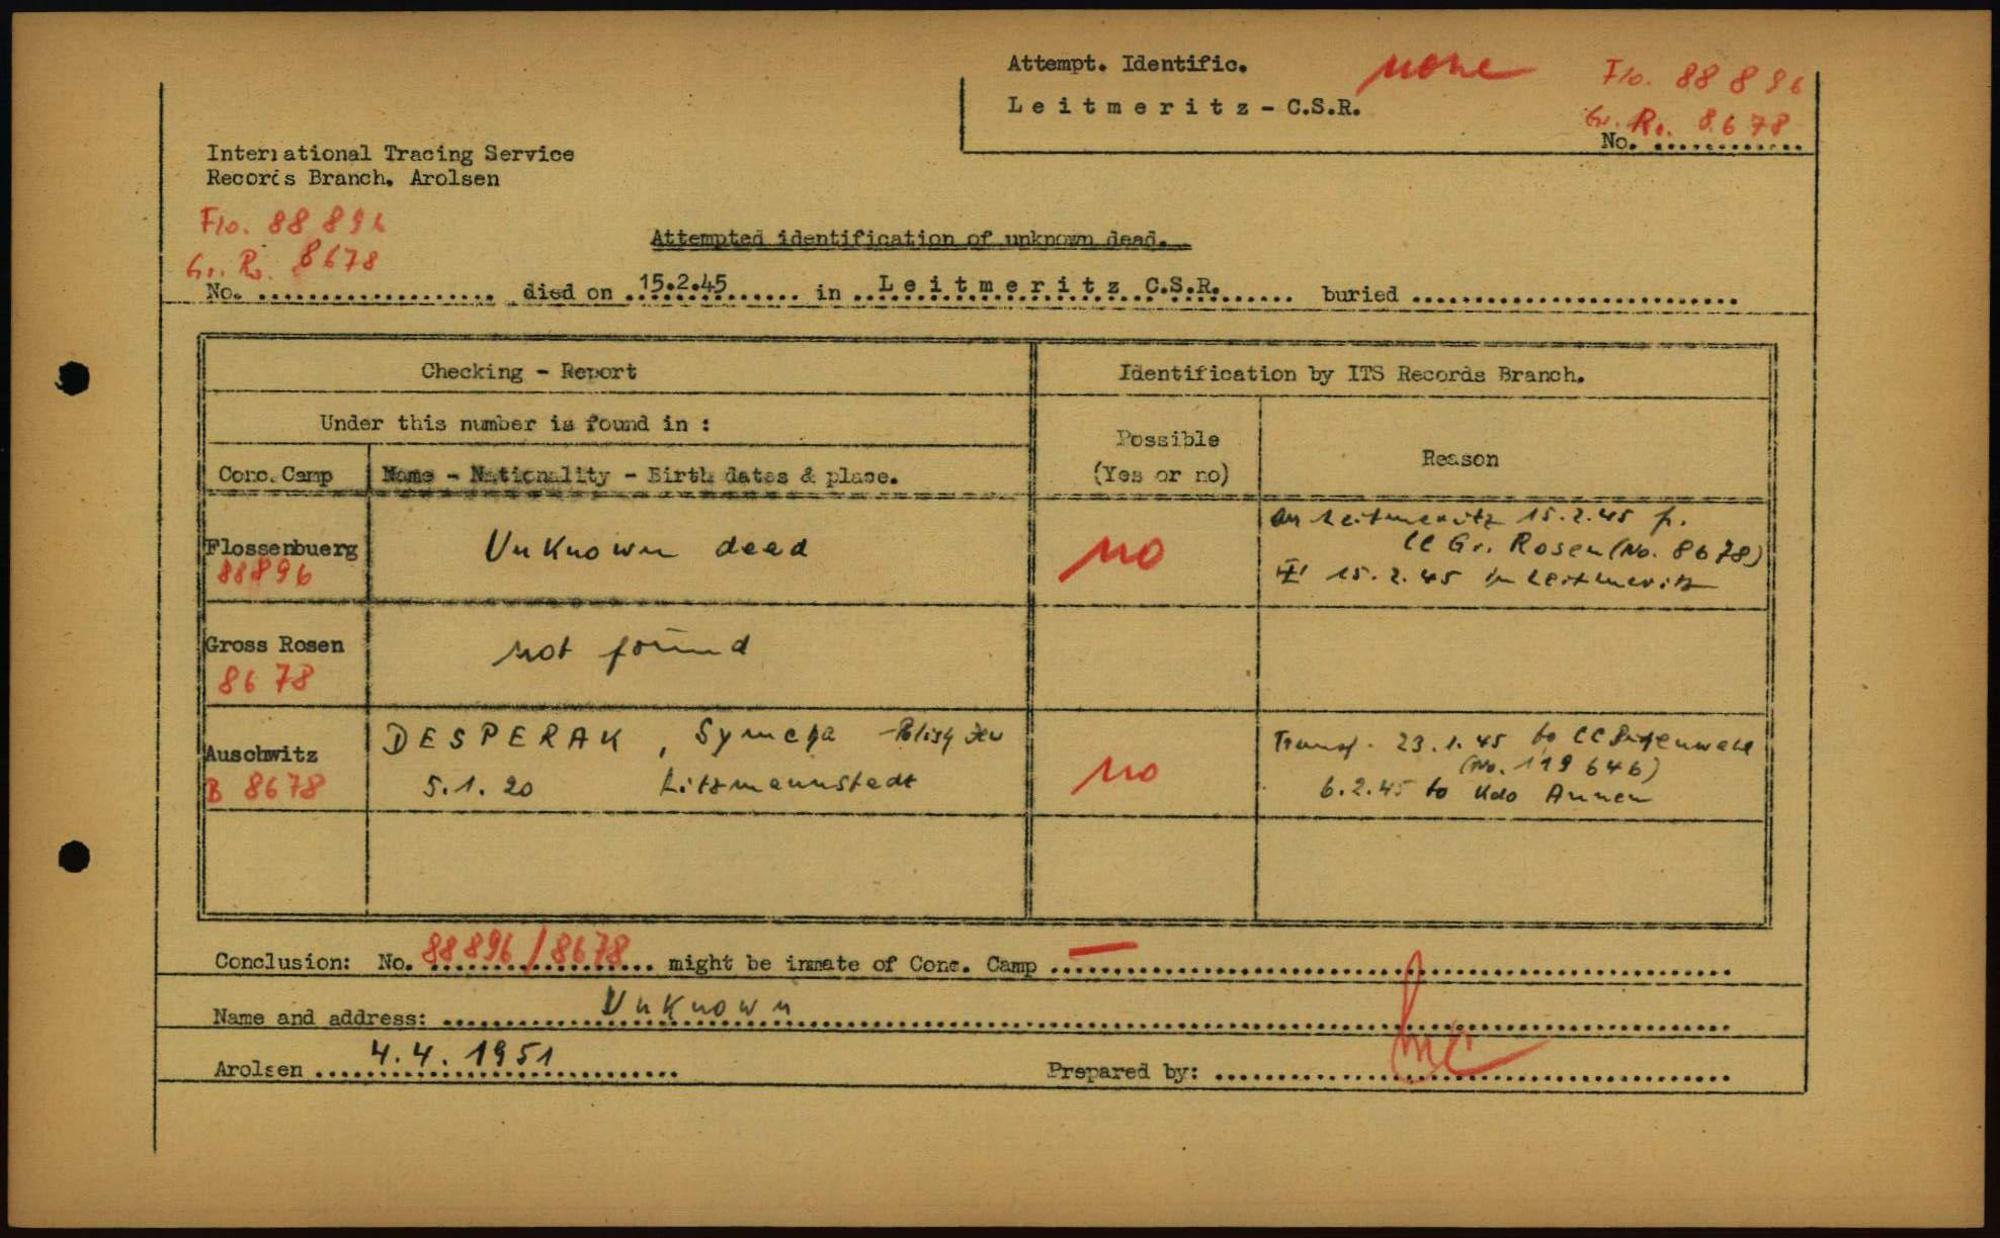 Attempt. Identific. none Flo. 88 896
Leitmeritz - C.S.R. Gr. Ro. 8678
No. ............
International Tracing Service
Records Branch. Arolsen
Flo. 88 896
Gr. Ro. 8678
Attempted identification of unknown dead.
No. .................. died on 15.2.45 in Leitmeritz C.S.R. buried ..........................
Checking - Report
Identification by ITS Records Branch.
Under this number is found in :
Possible
(Yes or no)
Reason
Conc. Camp
Name - Nationality - Birth dates & place.
Flossenbuerg
88896
Unknown dead
no
Leitmeritz 15.2.45 f.
CC Gr. Rosen (No. 8678)
15.2.45 in Leitmeritz
Gross Rosen
8678
not found
Auschwitz
B 8678
DESPERAK, Symcha - Polish Jew
5.1.20 Litzmannstadt
no
Transf. 23.1.45 to CC Buchenwald
(No. 119646)
6.2.45 to Kdo Annen
Conclusion: No. 88896/8678 might be inmate of Conc. Camp —
Name and address: Unknown
Arolsen 4.4.1951
Prepared by: